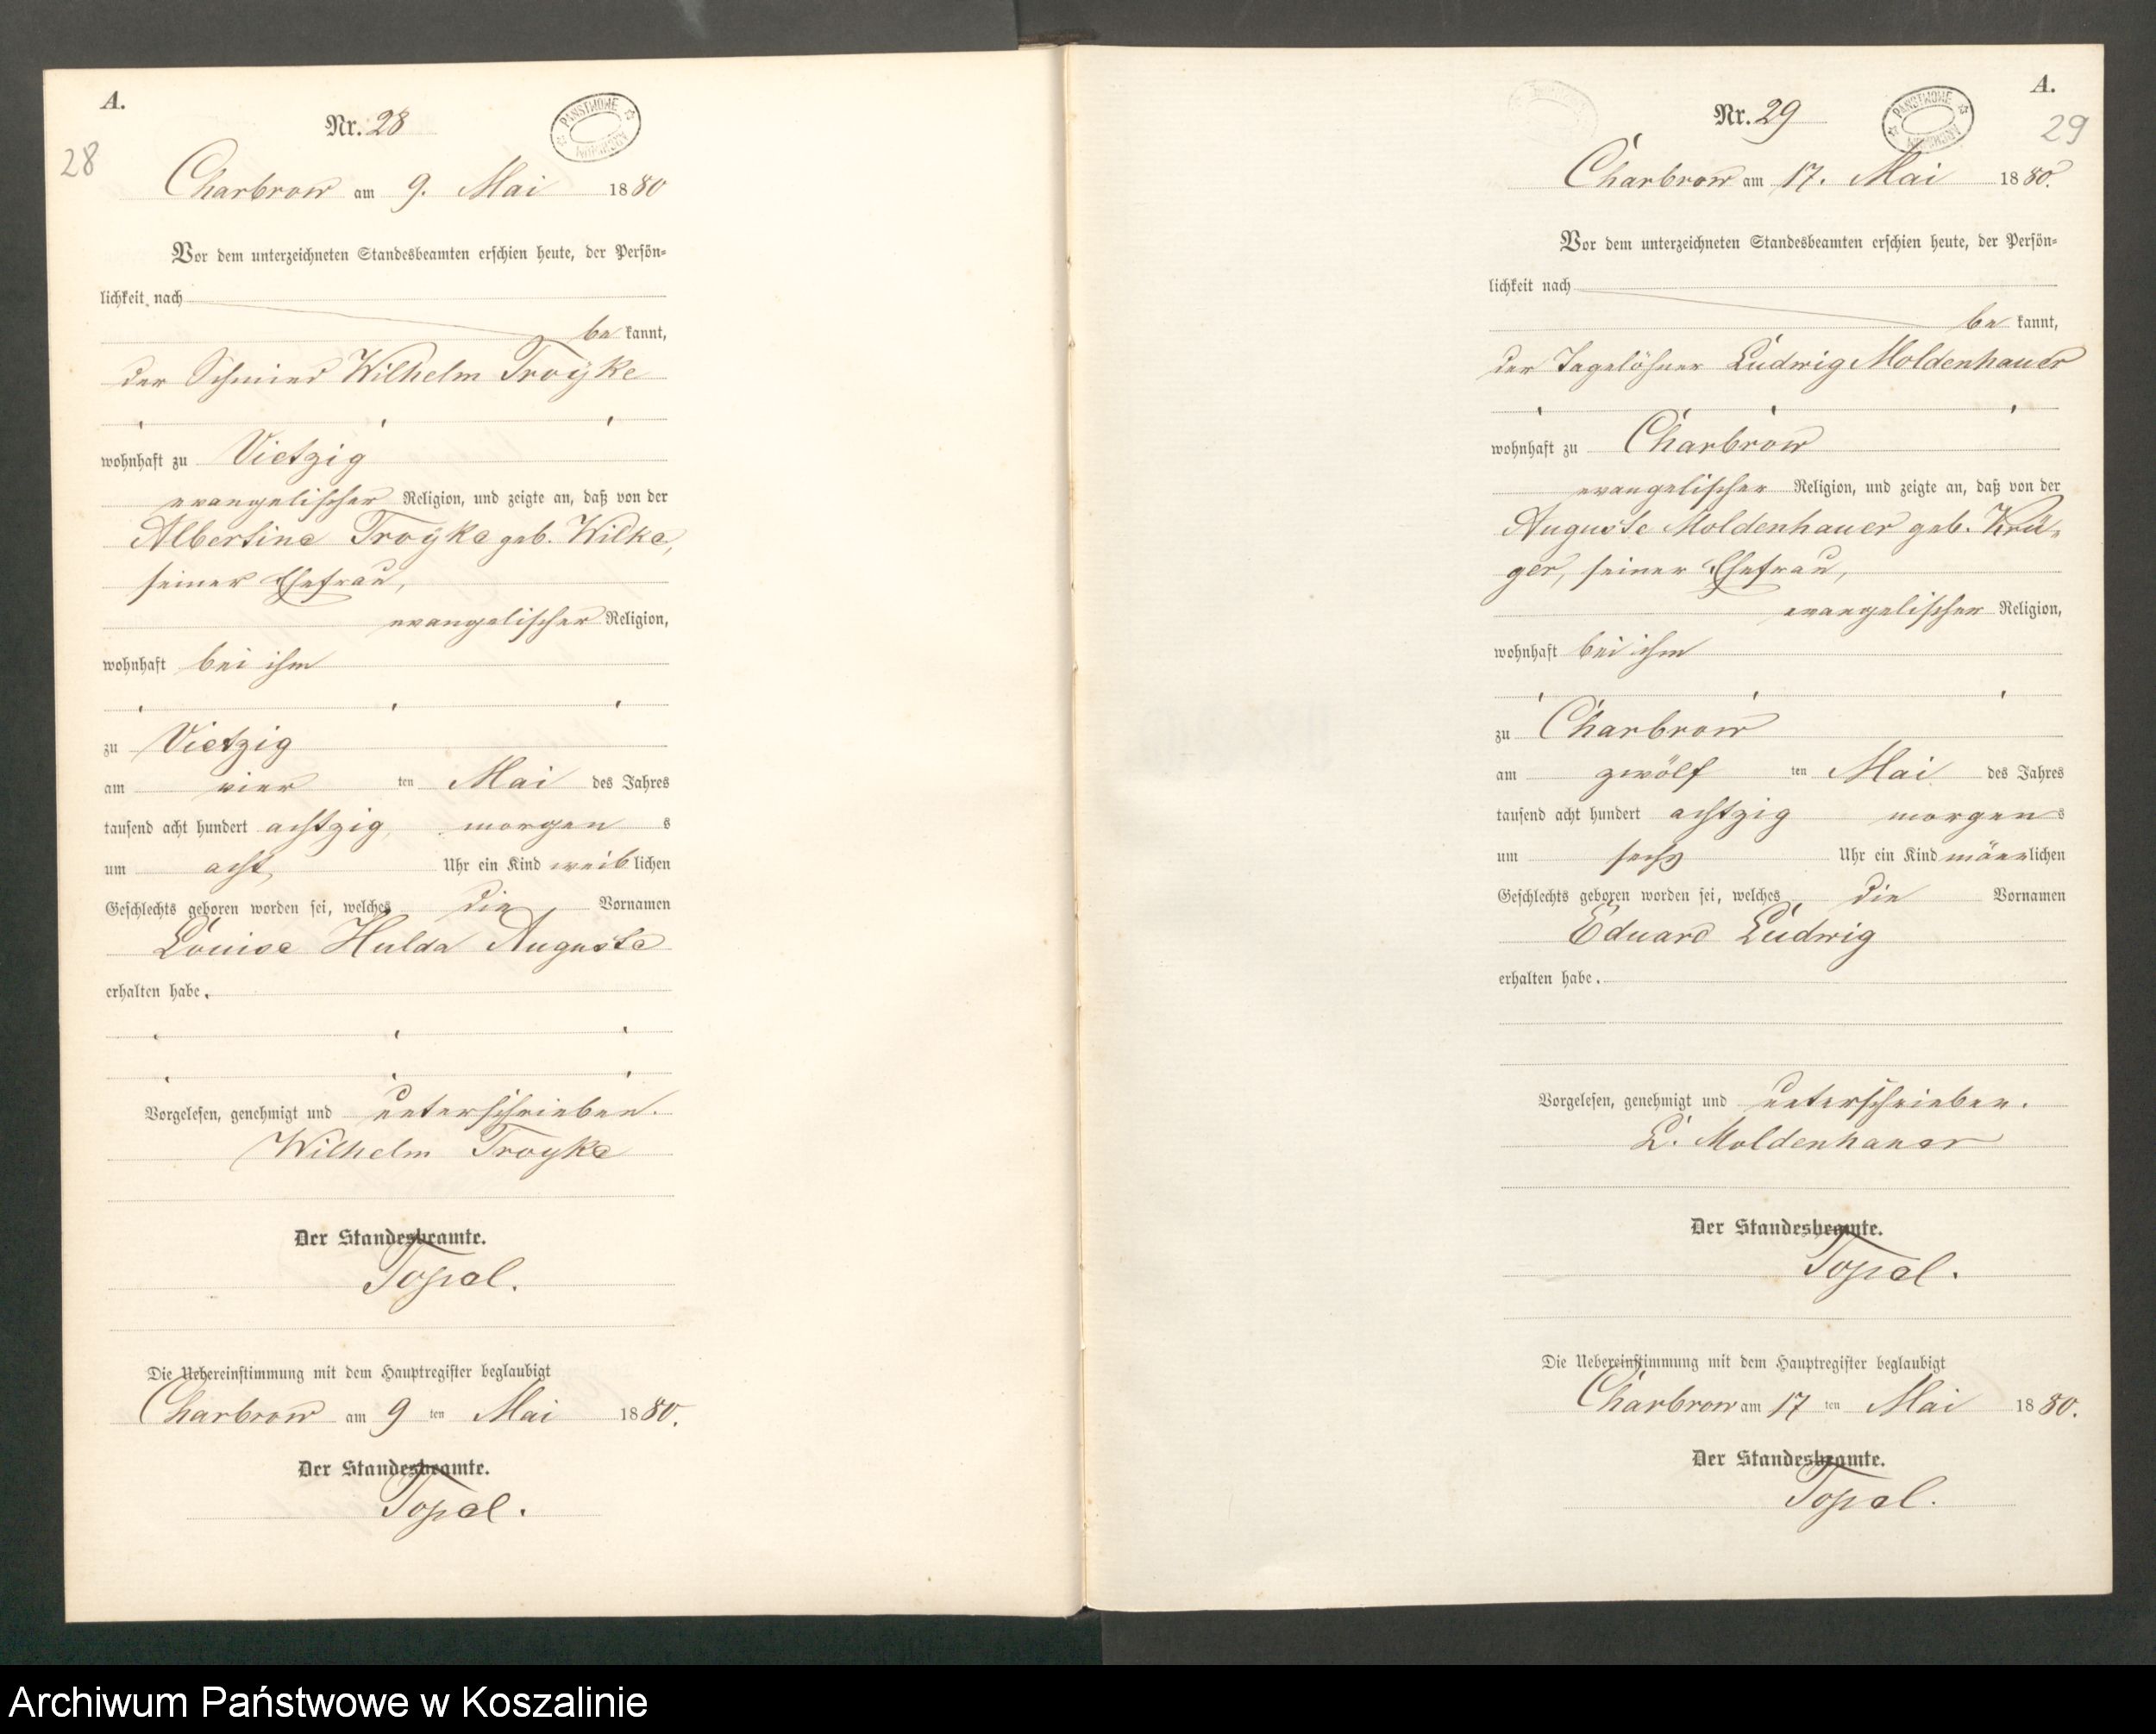 A.
Nr. 28
PAŃSTWOWE
28
Charbrow am 9. Mai 1880
Vor dem unterzeichneten Standesbeamten erschien heute, der Persön-
lichkeit nach
be kannt,
der Schmied Wilhelm Troyke
wohnhaft zu Vietzig
evangelischer Religion, und zeigte an, daß von der
Albertine Troyke geb. Wilke,
seiner Ehefrau,
evangelischer Religion,
wohnhaft bei ihm
zu Vietzig
am vier ten Mai des Jahres
tausend acht hundert achtzig, morgen s
um acht Uhr ein Kind weiblichen
Geschlechts geboren worden sei, welches die Vornamen
Louise Hulda Auguste
erhalten habe.
Vorgelesen, genehmigt und unterschrieben.
Wilhelm Troyke
Der Standesbeamte.
Topel.
Die Uebereinstimmung mit dem Hauptregister beglaubigt
Charbrow am 9 ten Mai 1880.
Der Standesbeamte.
Topel.
A.
Nr. 29
PAŃSTWOWE
29
Charbrow am 17. Mai 1880.
Vor dem unterzeichneten Standesbeamten erschien heute, der Persön-
lichkeit nach
be kannt,
der Tagelöhner Ludwig Moldenhauer
wohnhaft zu Charbrow
evangelischer Religion, und zeigte an, daß von der
Auguste Moldenhauer geb. Krü-
ger, seiner Ehefrau,
evangelischer Religion,
wohnhaft bei ihm
zu Charbrow
am zwölf ten Mai des Jahres
tausend acht hundert achtzig morgens
um sechs Uhr ein Kind männlichen
Geschlechts geboren worden sei, welches die Vornamen
Eduard Ludwig
erhalten habe.
Vorgelesen, genehmigt und unterschrieben.
L. Moldenhauer
Der Standesbeamte.
Topel.
Die Uebereinstimmung mit dem Hauptregister beglaubigt
Charbrow am 17 ten Mai 1880.
Der Standesbeamte.
Topel.
Archiwum Państwowe w Koszalinie